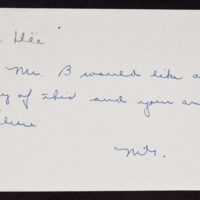 Dee
Mr. B would like a
y of this and your an
here
Mts.